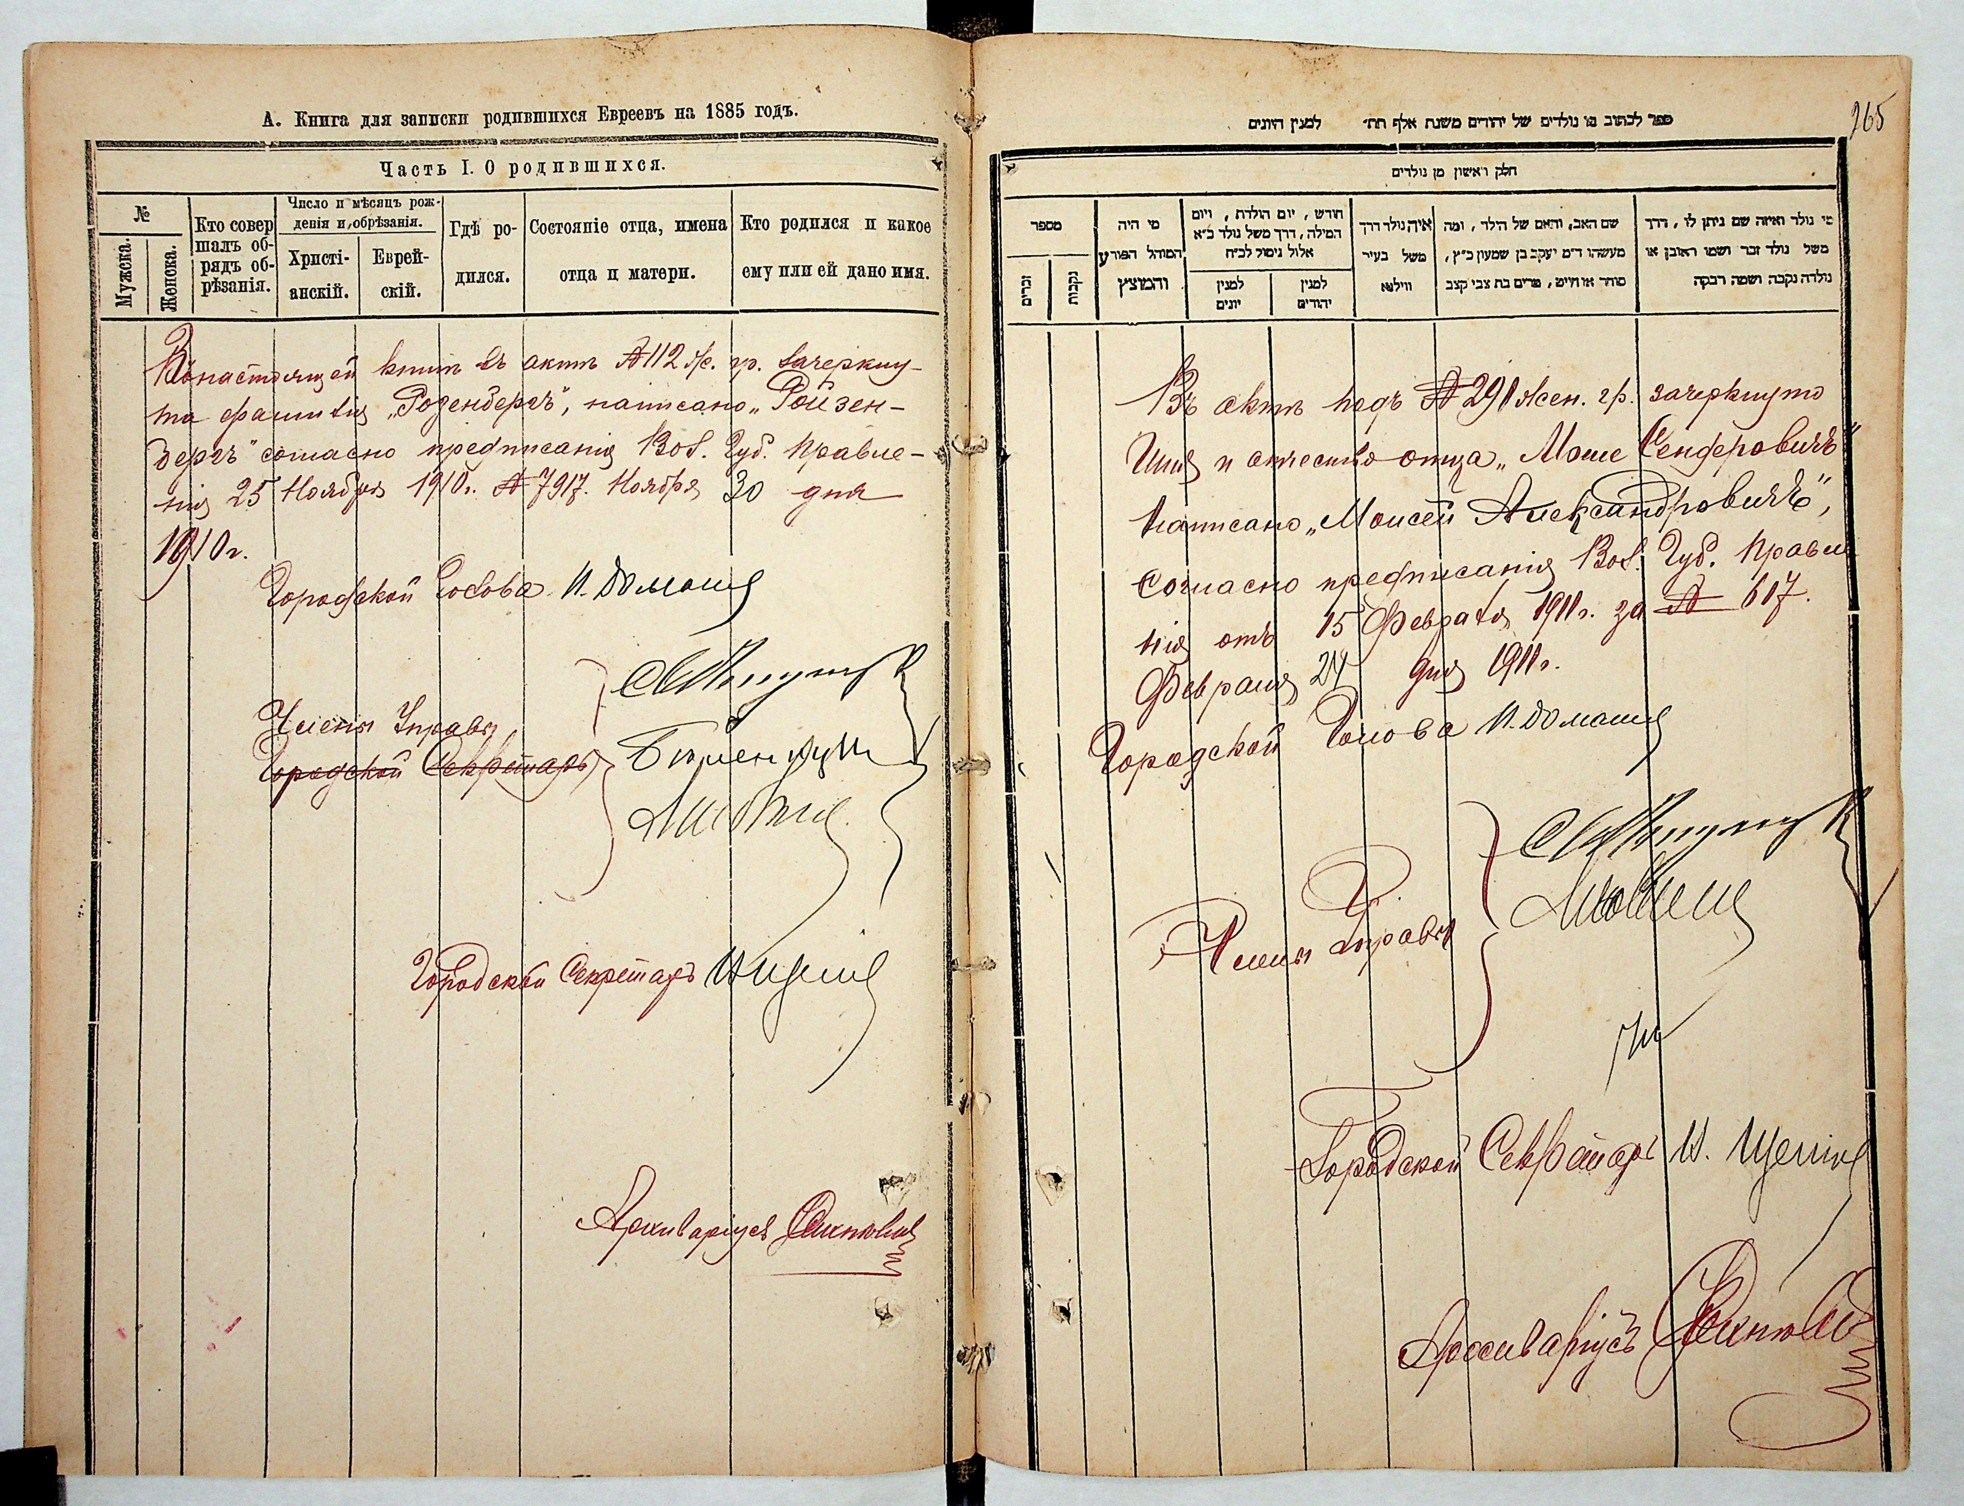 А. Книга для записки родившихся Евреевъ на 1885 годъ.
Часть I. О родившихся.
№
Мужска.
Женска.
Кто совер
шалъ об-
рядъ об-
рѣзанія.
Число и мѣсяцъ рож-
денія и обрѣзанія.
Христі-
анскій.
Еврей-
скій.
Гдѣ ро-
дился.
Состояніе отца, имена
отца и матери.
Кто родился и какое
ему или ей дано имя.
В настоящей книгѣ въ актѣ №112 ж. гр. зачеркну-
та фамилія „Розенбергъ", написано „Ройзен-
бергъ" согласно предписанія Вол. Губ. Правле-
нія 25 Ноября 1910г. № 7917. Ноября 30 дня
1910г.
Городской Голова И. Домаш
Члены Управы
Городской Секретарь
Городской Секретарь
Архиваріусъ
265
ספר לכתוב בו נולדים של יהודים משנת אלף תת׳ למנין היונים
חלק ראשון מן נולדים
מספר
זכרים
נקבות
מי היה
המוהל הפורע
והמוצץ
חודש, יום הולדת, ויום
המילה, דרך משל נולד כ״א
אלול נימול לכ״ח
למנין
יונים
למנין
יהודים
איה נולד דרך
משל בעיר
ווילנא
שם האב, והאם של הילד, ומה
מעשהו ד״מ יעקב בן שמעון כ״ץ,
סוחר או חייט, מרים בת צבי קצב
מי נולד ואיזה שם ניתן לו, דרך
משל נולד זכר ושמו ראובן או
נולדה נקבה ושמה רבקה
Въ актѣ подъ № 291 жен. гр. зачеркнуто
Имя и отчество отца „Моше Сендеровичъ"
написано „Моисей Александровичъ",
согласно предписанія Вол. Губ. Правле
нія отъ 15 Февраля 1911г. за № 617.
Февраля 24 дня 1911г.
Городской Голова И. Домаш
Члены Управы
Городской Секретарь И.
Архиваріусъ